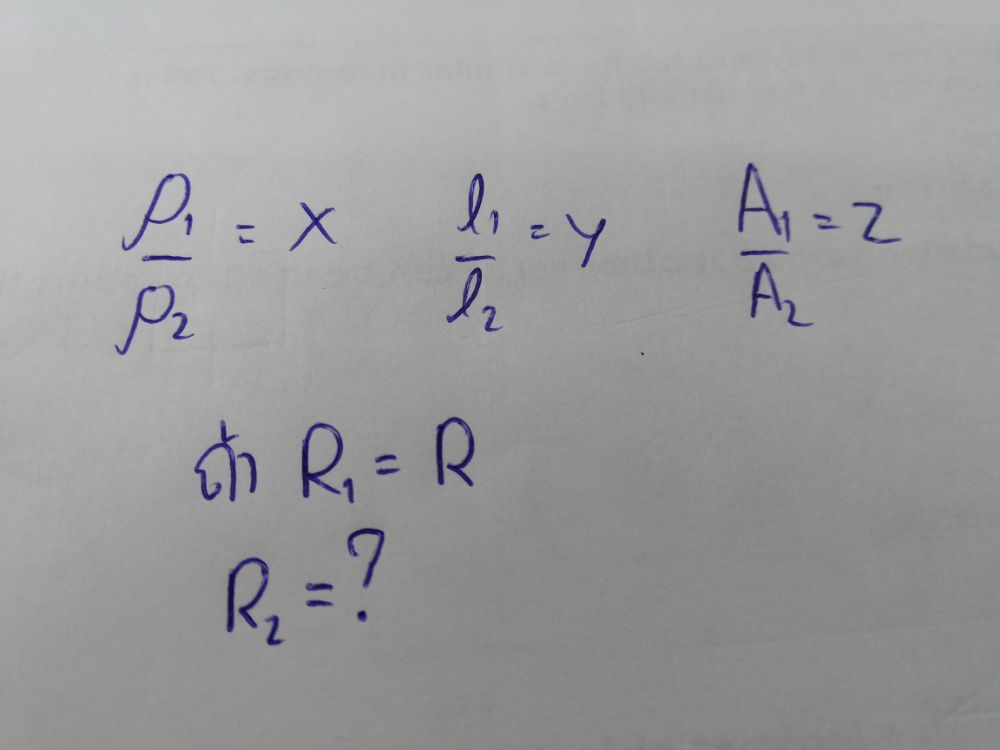 ρ₁/ρ₂ = x   l₁/l₂ = y   A₁/A₂ = z
ถ้า R₁ = R
R₂ = ?